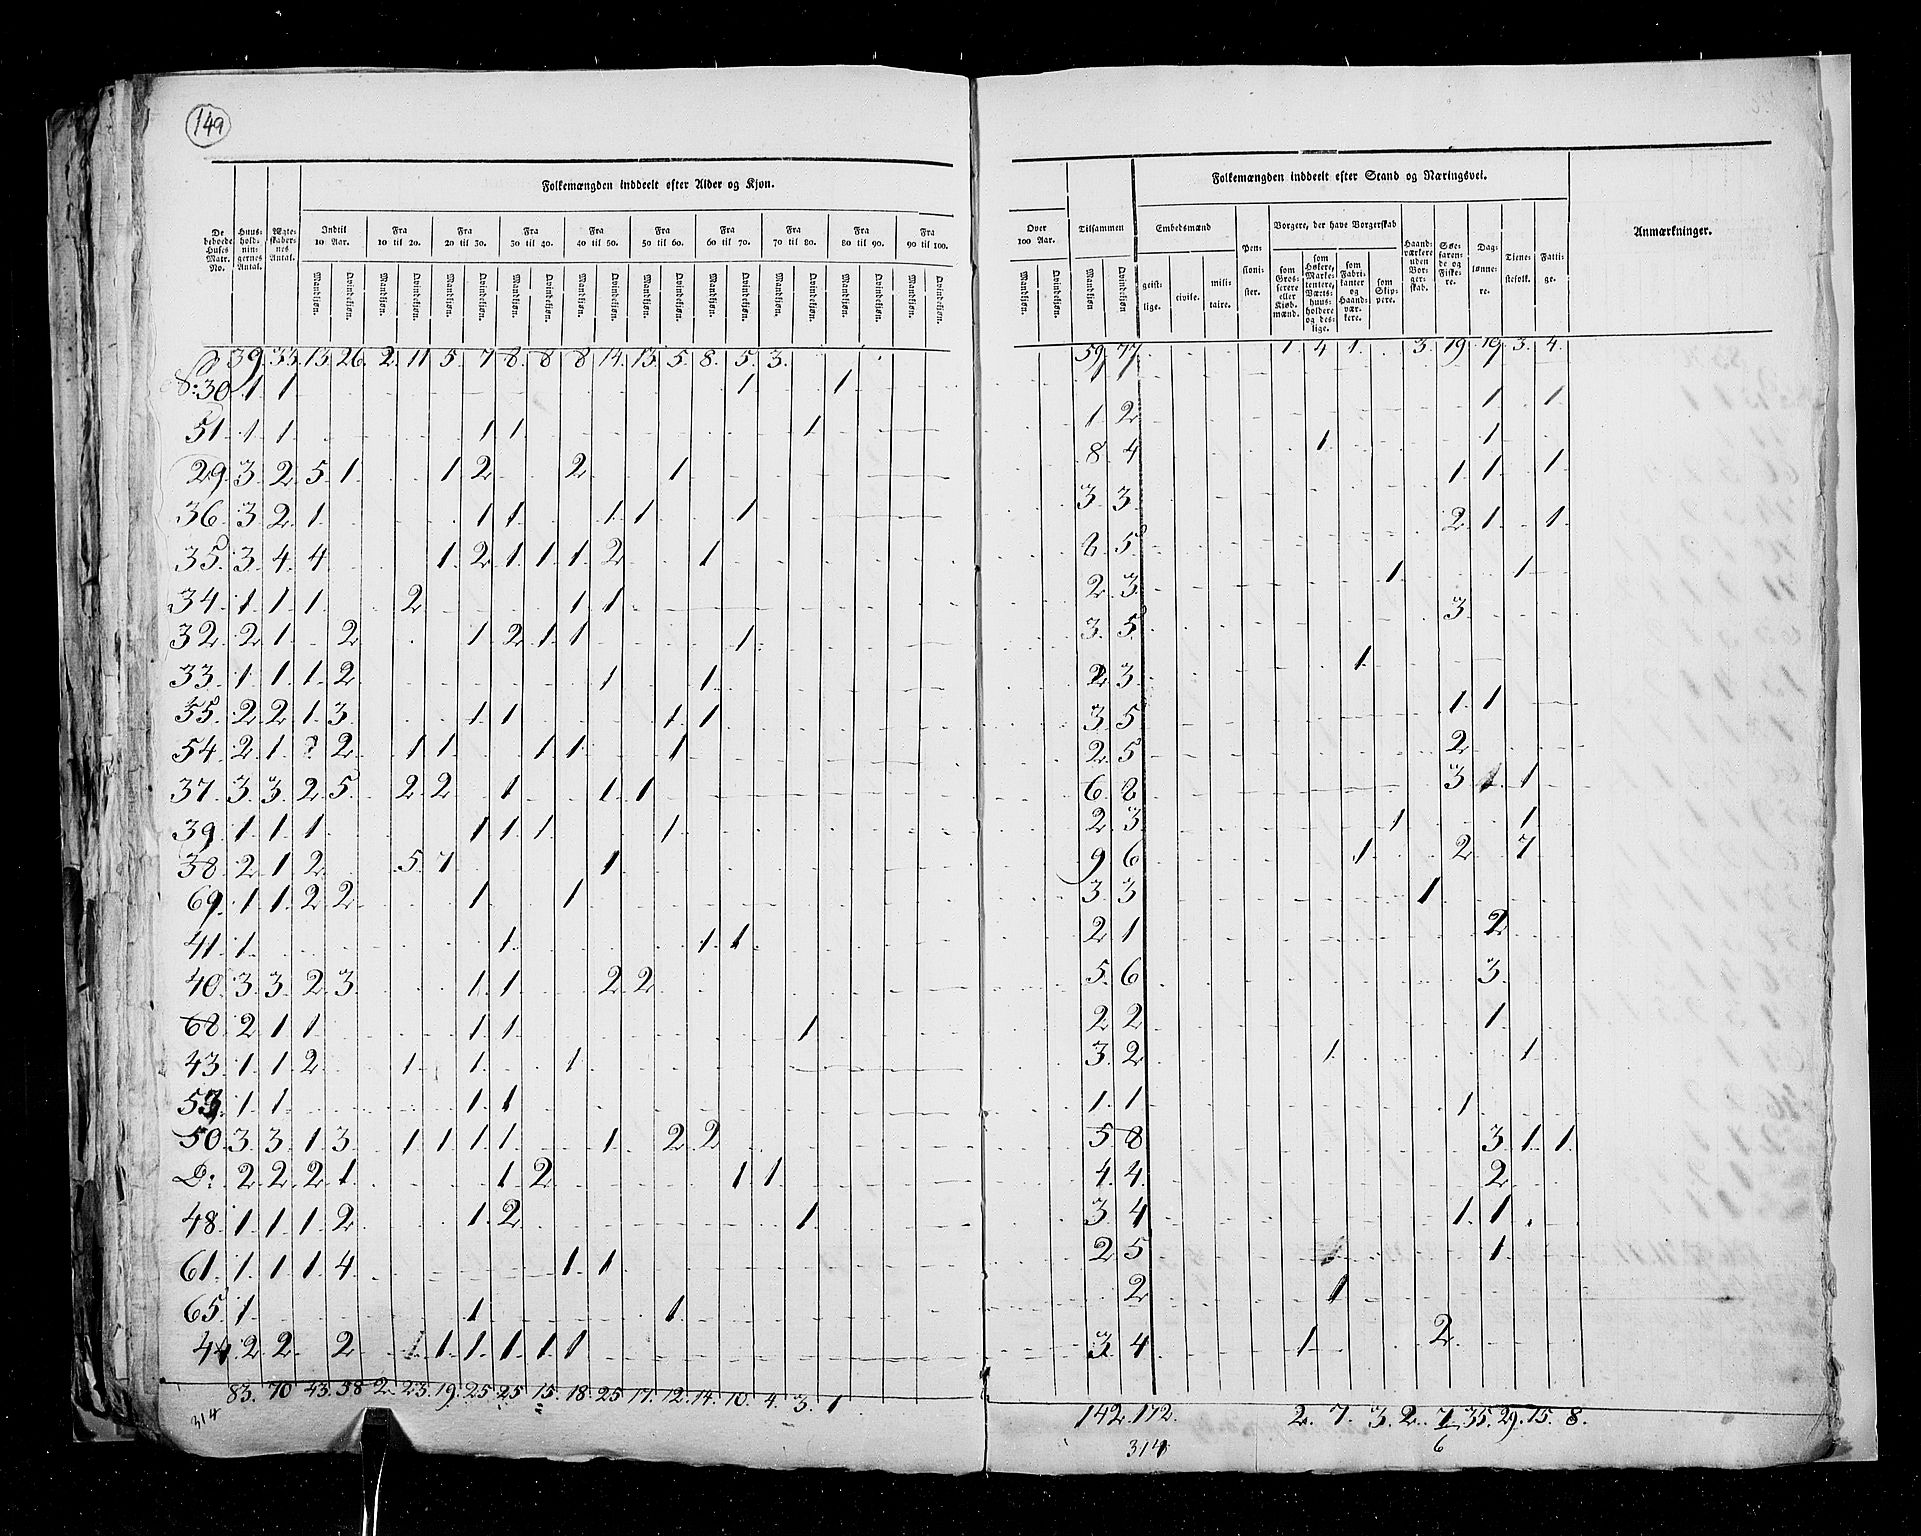 149
Folkemængden inddeelt efter Alder og Kjøn.
Folkemængden inddeelt efter Stand og Næringsvei.
De beboede Huses Matr. No.
Huusholdningernes Antal.
Ægteskabernes Antal.
Indtil 10 Aar.
Fra 10 til 20.
Fra 20 til 30.
Fra 30 til 40.
Fra 40 til 50.
Fra 50 til 60.
Fra 60 til 70.
Fra 70 til 80.
Fra 80 til 90.
Fra 90 til 100.
Over 100 Aar.
Tilsammen
Mandkjøn. Qvindekjøn.
Embedsmænd
geistlige.
civile.
militaire.
Pensionister.
Borgere, der have Borgerskab
som Grosserere eller Kjøbmænd.
som Høkere, Marketentere, Værtshuusholdere og deslige.
som Fabrikanter og Haandværkere.
som Skippere.
Haandværkere uden Borgerskab.
Søefarende og Fiskere.
Daglønnere.
Tienestefolk.
Fattige.
Anmærkninger.
39. 33. 13. 26. 2. 11. 5. 7. 8. 8. 8. 14. 13. 5. 8. 5. 3. 59. 77. 1. 4. 1. 3. 19. 19. 3. 4.
30 1 1 1 1 1 1 1 1
51 1 1 1 1 1 1 2 1 1
29 3 2 5 1 1 2 2 1 8 4 1 1 1
36 3 2 1 1 1 1 1 1 3 3 2 1 1
35 3 4 4 1 2 1 1 1 2 1 8 5 1 1
34 1 1 1 2 1 1 2 3 3
32 2 1 2 1 2 1 1 1 3 5 1
33 1 1 1 2 1 1 2 3 1 1
55 2 2 1 3 1 1 1 1 3 5 2
54 2 1 2 1 1 1 1 1 2 5 3 1 1
37 3 3 2 5 2 2 1 1 1 6 8 1 1
39 1 1 1 1 1 1 1 2 3 1 2 7
38 2 1 2 5 7 1 9 6 1
69 1 1 2 2 1 1 3 3 2
41 1 1 1 1 2 1 3
40 3 3 2 3 1 1 2 2 5 6 1
68 2 1 1 1 1 1 2 2 1 1
43 1 1 2 1 1 1 3 2 1
53 1 1 1 1 1 1
50 3 3 1 3 1 1 1 1 1 2 2 5 8 3 1 1
D: 2 2 2 1 1 2 1 1 4 4 2
48 1 1 1 2 1 2 1 3 4 1 1
61 1 1 1 4 1 1 2 5 1 1
65 1 1 1 2 1
44 2 2 2 1 1 1 1 1 1 3 4 1 2
83. 70 43. 58 2. 23. 19. 25. 25 15. 18. 25 17. 12. 14. 10. 4. 3. 1 142. 172. 2. 7. 3. 2. 7. 35. 29. 15. 8.
314
314
6